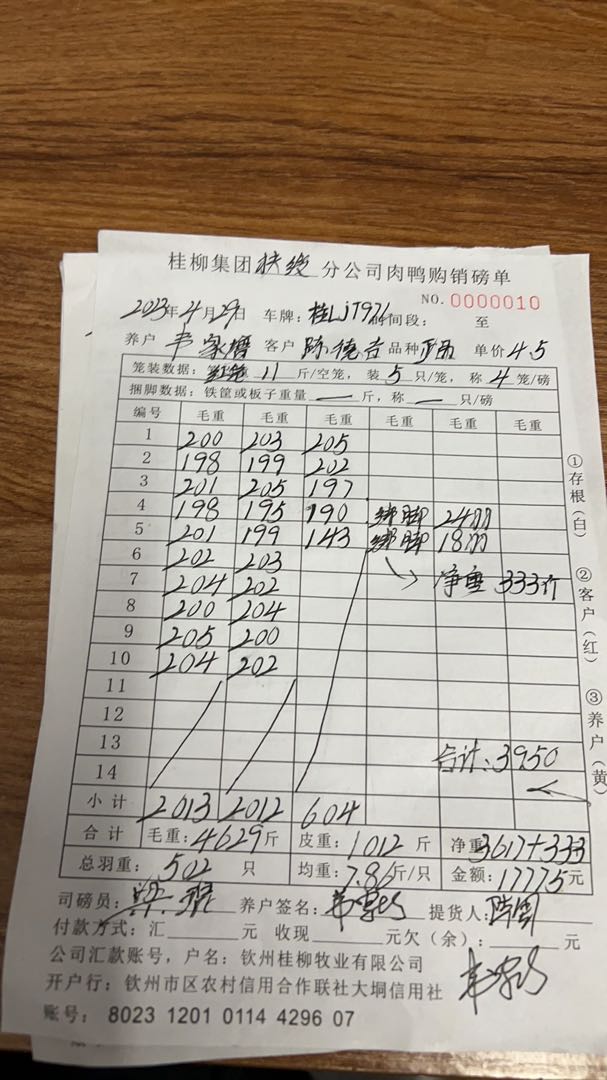 桂柳集团扶绥分公司肉鸭购销磅单
NO.0000010
2023年4月29日 车牌:桂LJT971 时间段: 至
养户 韦家槽 客户 陈德吉 品种 单价 4.5
笼装数据: 11 斤/空笼,装 5 只/笼,称 4 笼/磅
捆脚数据:铁筐或板子重量 — 斤,称 — 只/磅
编号 毛重 毛重 毛重 毛重 毛重 毛重
1 200 203 205
2 198 199 202
3 201 205 197
4 198 195 190 绑脚 24羽
5 201 199 143 绑脚 18羽
6 202 203
7 204 202 净重 333斤
8 200 204
9 205 200
10 204 202
11
12
13 合计:3950
14
小计 2013 2012 604
合计 毛重:4629斤 皮重:1012斤 净重3617+333
总羽重: 502 只 均重:7.86斤/只 金额:17775元
司磅员: 养户签名: 提货人:
付款方式:汇 元 收现 元欠(余): 元
公司汇款账号,户名:钦州桂柳牧业有限公司
开户行:钦州市区农村信用合作联社大垌信用社
账号: 8023 1201 0114 4296 07
①存根(白)
②客户(红)
③养户(黄)